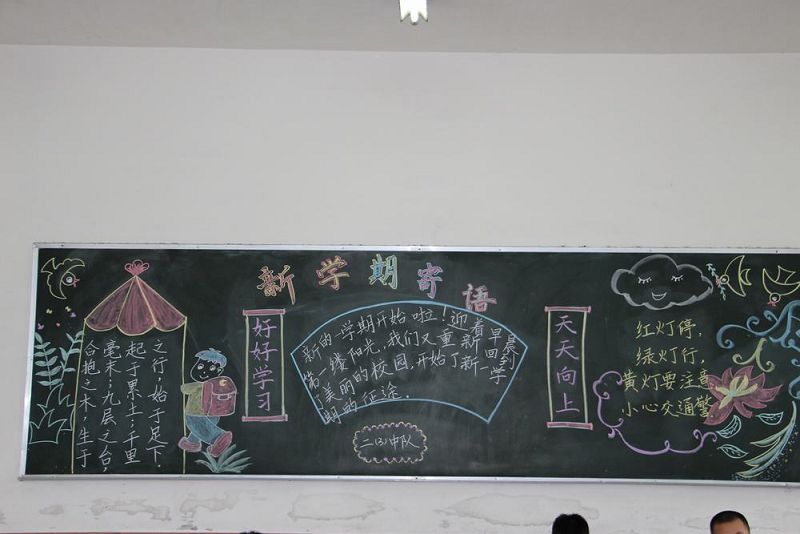 新学期寄语
合抱之木,生于
毫末;九层之台,
起于累土;千里
之行,始于足下.
好好学习
新的一学期开始啦!迎着早晨
第一缕阳光,我们又重新回到
了美丽的校园,开始了新学
期的征途.
二(3)中队
天天向上
红灯停,
绿灯行,
黄灯要注意
小心交通警